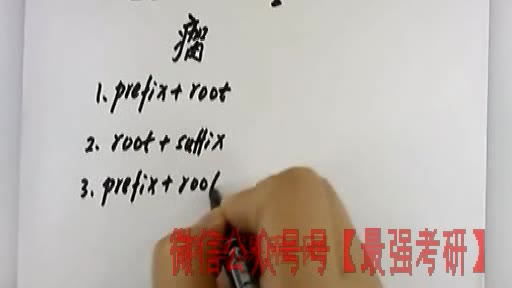 瘤
1. prefix + root
2. root + suffix
3. prefix + roo
微信公众号号【最强考研】